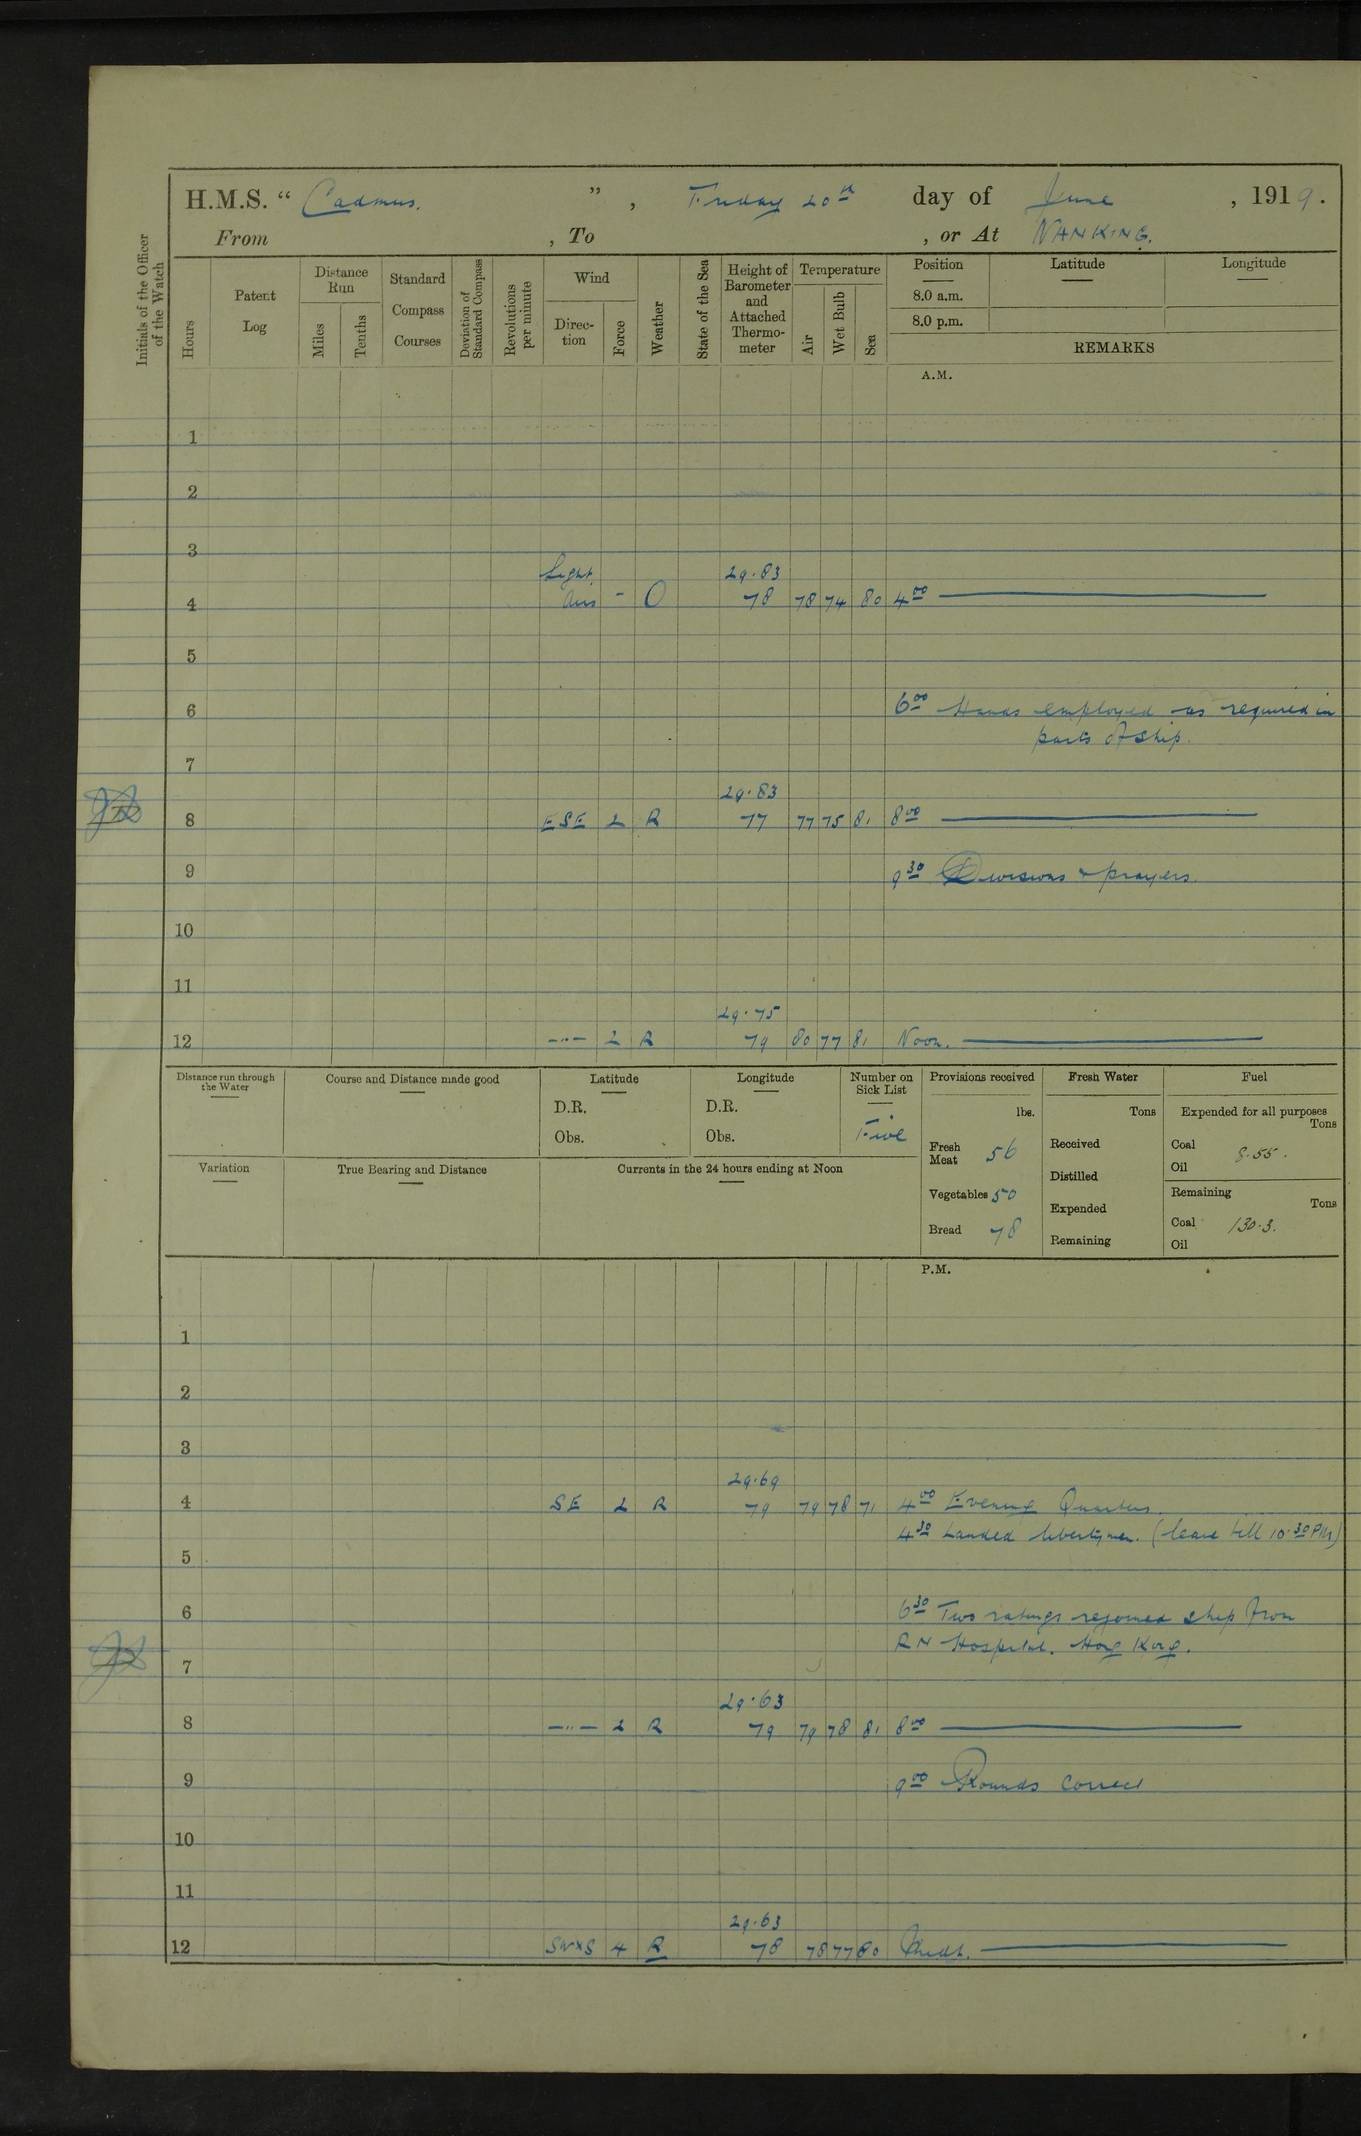 H.M.S. “ Cadmus. ” , Friday 20th day of June , 1919 .
From , To , or At NANKING.
Initials of the Officer of the Watch
Hours
Patent Log
Distance Run
Miles
Tenths
Standard Compass Courses
Deviation of Standard Compass
Revolutions per minute
Wind
Direc-tion
Force
Weather
State of the Sea
Height of Barometer and Attached Thermo-meter
Temperature
Air
Wet Bulb
Sea
Position
8.0 a.m.
8.0 p.m.
Latitude
Longitude
REMARKS
A.M.
1
2
3
Light 29.83
4 airs - O 78 78 74 80 4 00
5
6 6 00 Hands employed as required in
parts of ship.
7
29.83
8 ESE 2 R 77 77 75 81 8 00
9 9 30 Divisions & prayers.
10
11
29.75
12 —"— 2 R 79 80 77 81 Noon.
Distance run through the Water
Course and Distance made good
Latitude
D.R.
Obs.
Longitude
D.R.
Obs.
Number on Sick List
Five
Provisions received
lbs.
Fresh Meat 56
Vegetables 50
Bread 78
Fresh Water
Tons
Received
Distilled
Expended
Remaining
Fuel
Expended for all purposes
Tons
Coal 8.55.
Oil
Remaining
Tons
Coal 130.3.
Oil
Variation
True Bearing and Distance
Currents in the 24 hours ending at Noon
P.M.
1
2
3
29.69
4 SE 2 R 79 79 78 71 4 00 Evening Quarters.
4 30 Landed libertymen. (leave till 10.30 PM)
5
6 6 30 Two ratings rejoined ship from
RN Hospital. Hong Kong.
7
29.63
8 —"— 2 R 79 79 78 81 8 00
9 9 00 Rounds correct
10
11
29.63
12 SWxS 4 R 78 78 77 80 Midt.